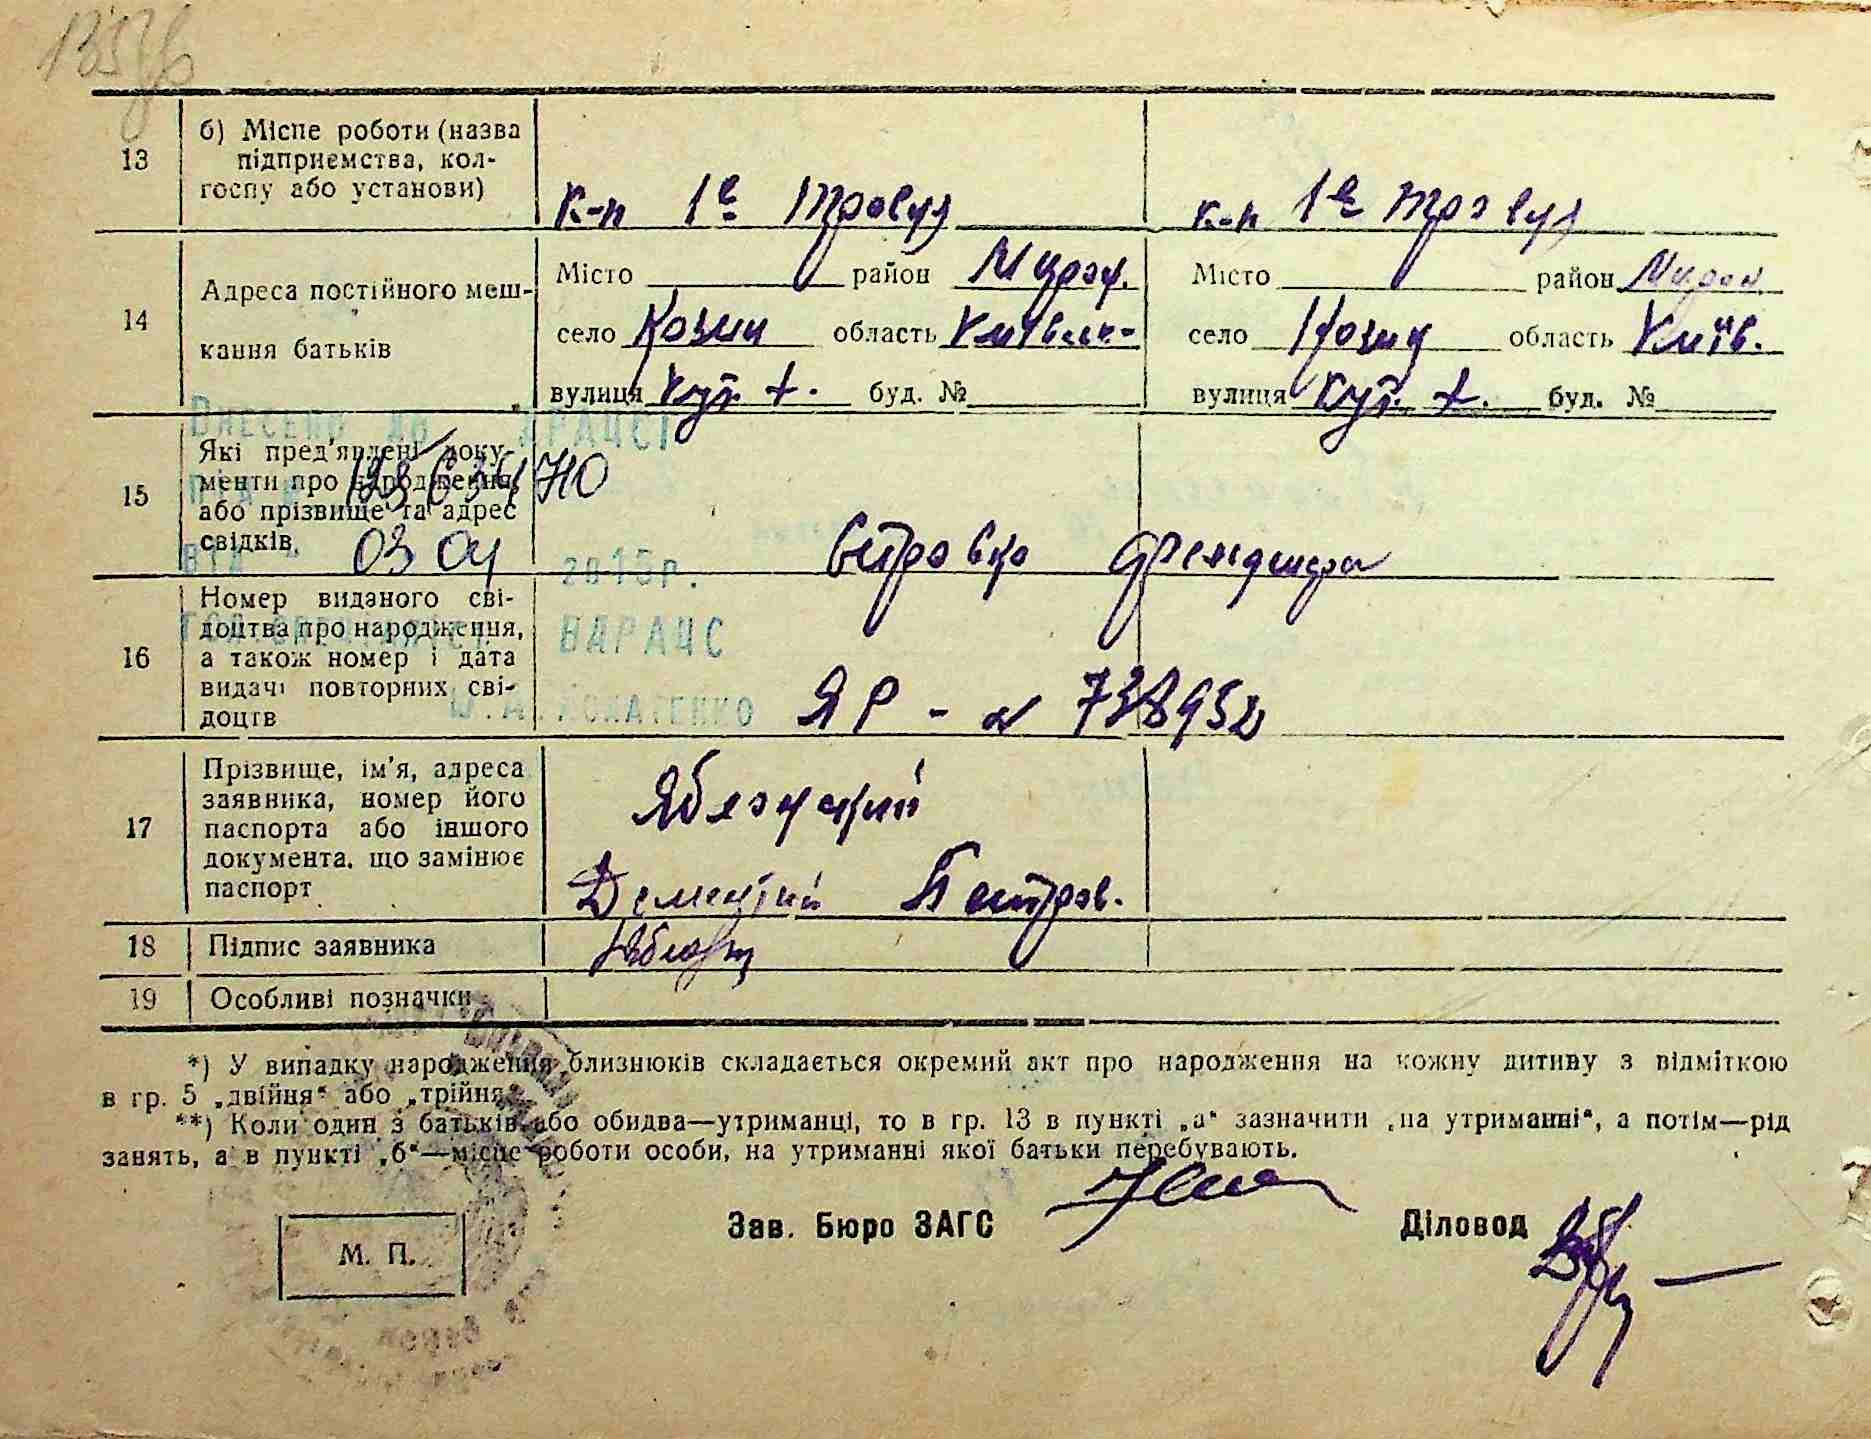 13
б) Місце роботи (назва
підприємства, кол-
госпу або установи)
к-п 1е Травня
к-п 1е Травня
14
Адреса постійного меш-
кання батьків
Місто район Мирон.
село Козин область Київськ-
вулиця Кут. буд. №
Місто район Мирон.
село Козин область Київ.
вулиця Кут. буд. №
ВНЕСЕНО ДО ДРАЦСГ
15
Які пред'явлені доку-
менти про народження,
або прізвище та адрес
свідків.
03 04 2015р.
16
Номер виданого сві-
доцтва про народження,
а також номер і дата
видачі повторних сві-
доцтв
ВДРАЦС
ЯР - № 738952
17
Прізвище, ім'я, адреса
заявника, номер його
паспорта або іншого
документа, що замінює
паспорт
Дементій Петров.
18
Підпис заявника
19
Особливі позначки
*) У випадку народження близнюків складається окремий акт про народження на кожну дитину з відміткою
в гр. 5 „двійня“ або „трійня“.
**) Коли один з батьків або обидва—утриманці, то в гр. 13 в пункті „а“ зазначити „на утриманні“, а потім—рід
занять, а в пункті „б“—місце роботи особи, на утриманні якої батьки перебувають.
Зав. Бюро ЗАГС
Діловод
М. П.